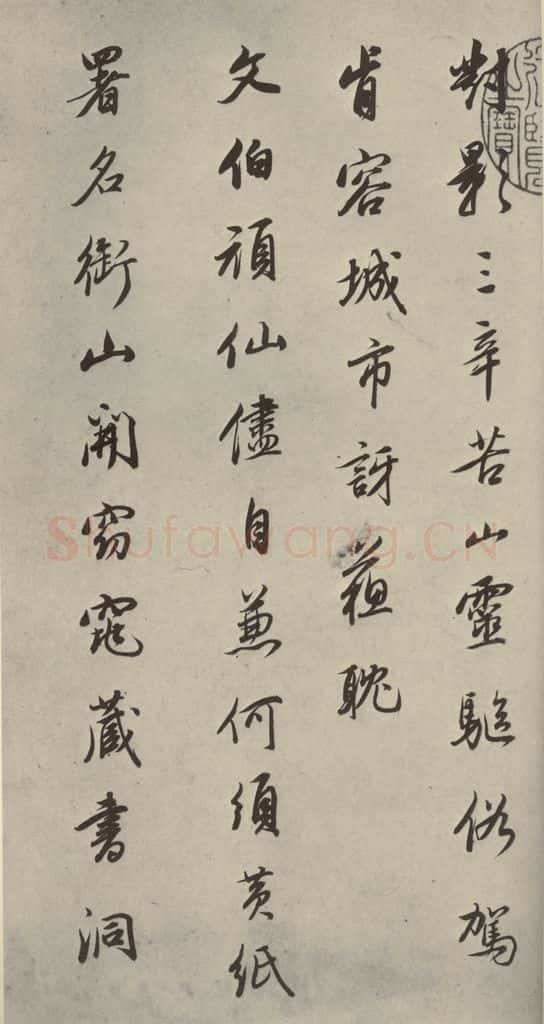 對影三辛苦山靈驅俗駕
肯容城市訝耽
文伯頑仙儘自兼何須黃紙
署名銜山開窈窕藏書洞
寶
Shufawang.CN